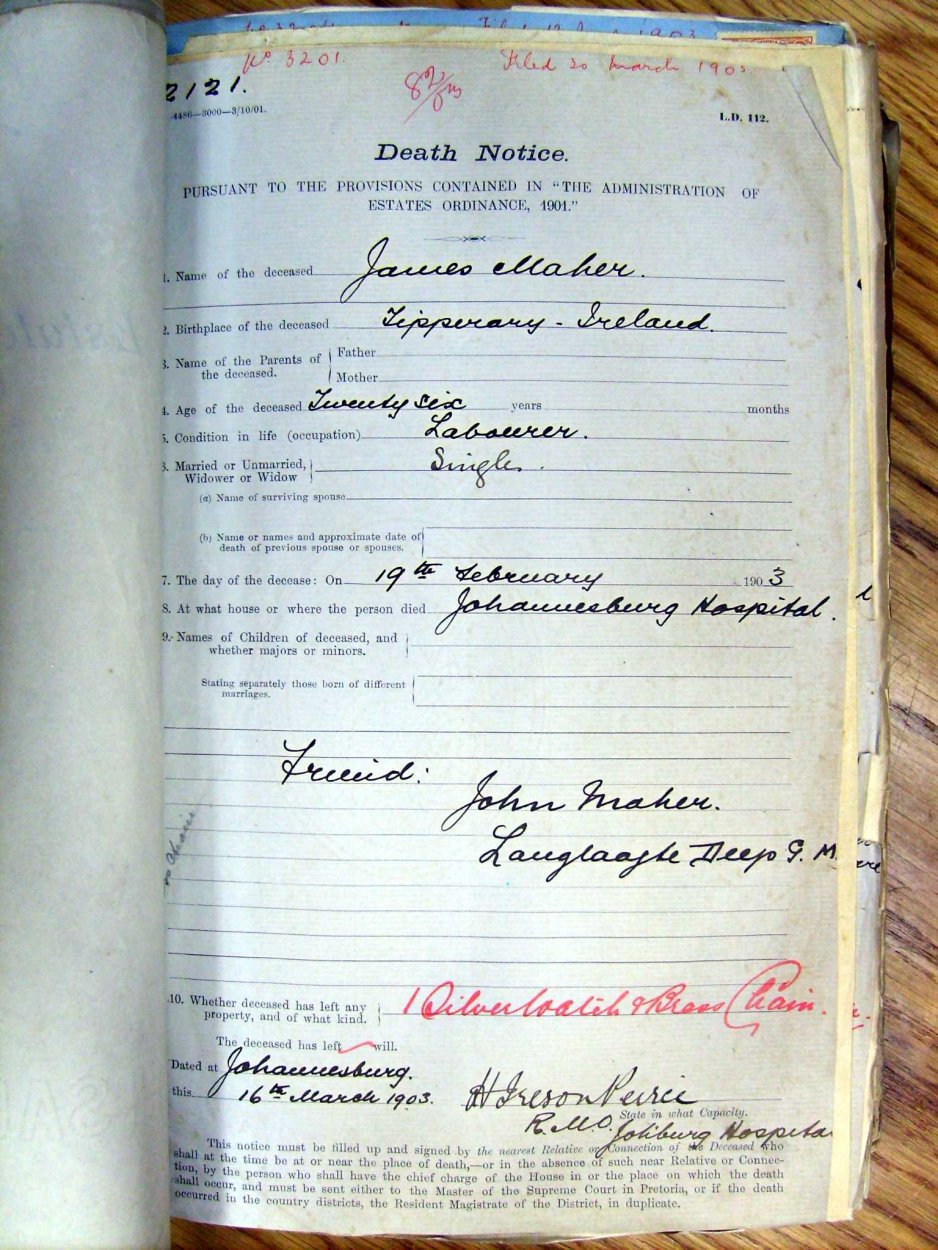 No. 3201.
Filed 20 March 1903
2121.
4486—3000—3/10/01.
L.D. 112.
Death Notice.
PURSUANT TO THE PROVISIONS CONTAINED IN “THE ADMINISTRATION OF
ESTATES ORDINANCE, 1901.”
1. Name of the deceased James Maher.
2. Birthplace of the deceased Tipperary - Ireland.
3. Name of the Parents of the deceased.
Father
Mother
4. Age of the deceased Twenty six years months
5. Condition in life (occupation) Labourer.
6. Married or Unmarried, Widower or Widow Single.
(a) Name of surviving spouse
(b) Name or names and approximate date of
death of previous spouse or spouses.
7. The day of the decease: On 19th February 1903
8. At what house or where the person died Johannesburg Hospital.
9. Names of Children of deceased, and
whether majors or minors.
Stating separately those born of different
marriages.
Friend:
John Maher.
Langlaagte Deep G. M.
10. Whether deceased has left any
property, and of what kind. 1 Silver Watch & Brass Chain.
The deceased has left will.
Dated at Johannesburg.
this 16th March 1903. H Ireson
State in what Capacity.
R.M.O. Joh'burg Hospital
This notice must be filled up and signed by the nearest Relative or Connection of the Deceased who
shall at the time be at or near the place of death,—or in the absence of such near Relative or Connec-
tion, by the person who shall have the chief charge of the House in or the place on which the death
shall occur, and must be sent either to the Master of the Supreme Court in Pretoria, or if the death
occurred in the country districts, the Resident Magistrate of the District, in duplicate.